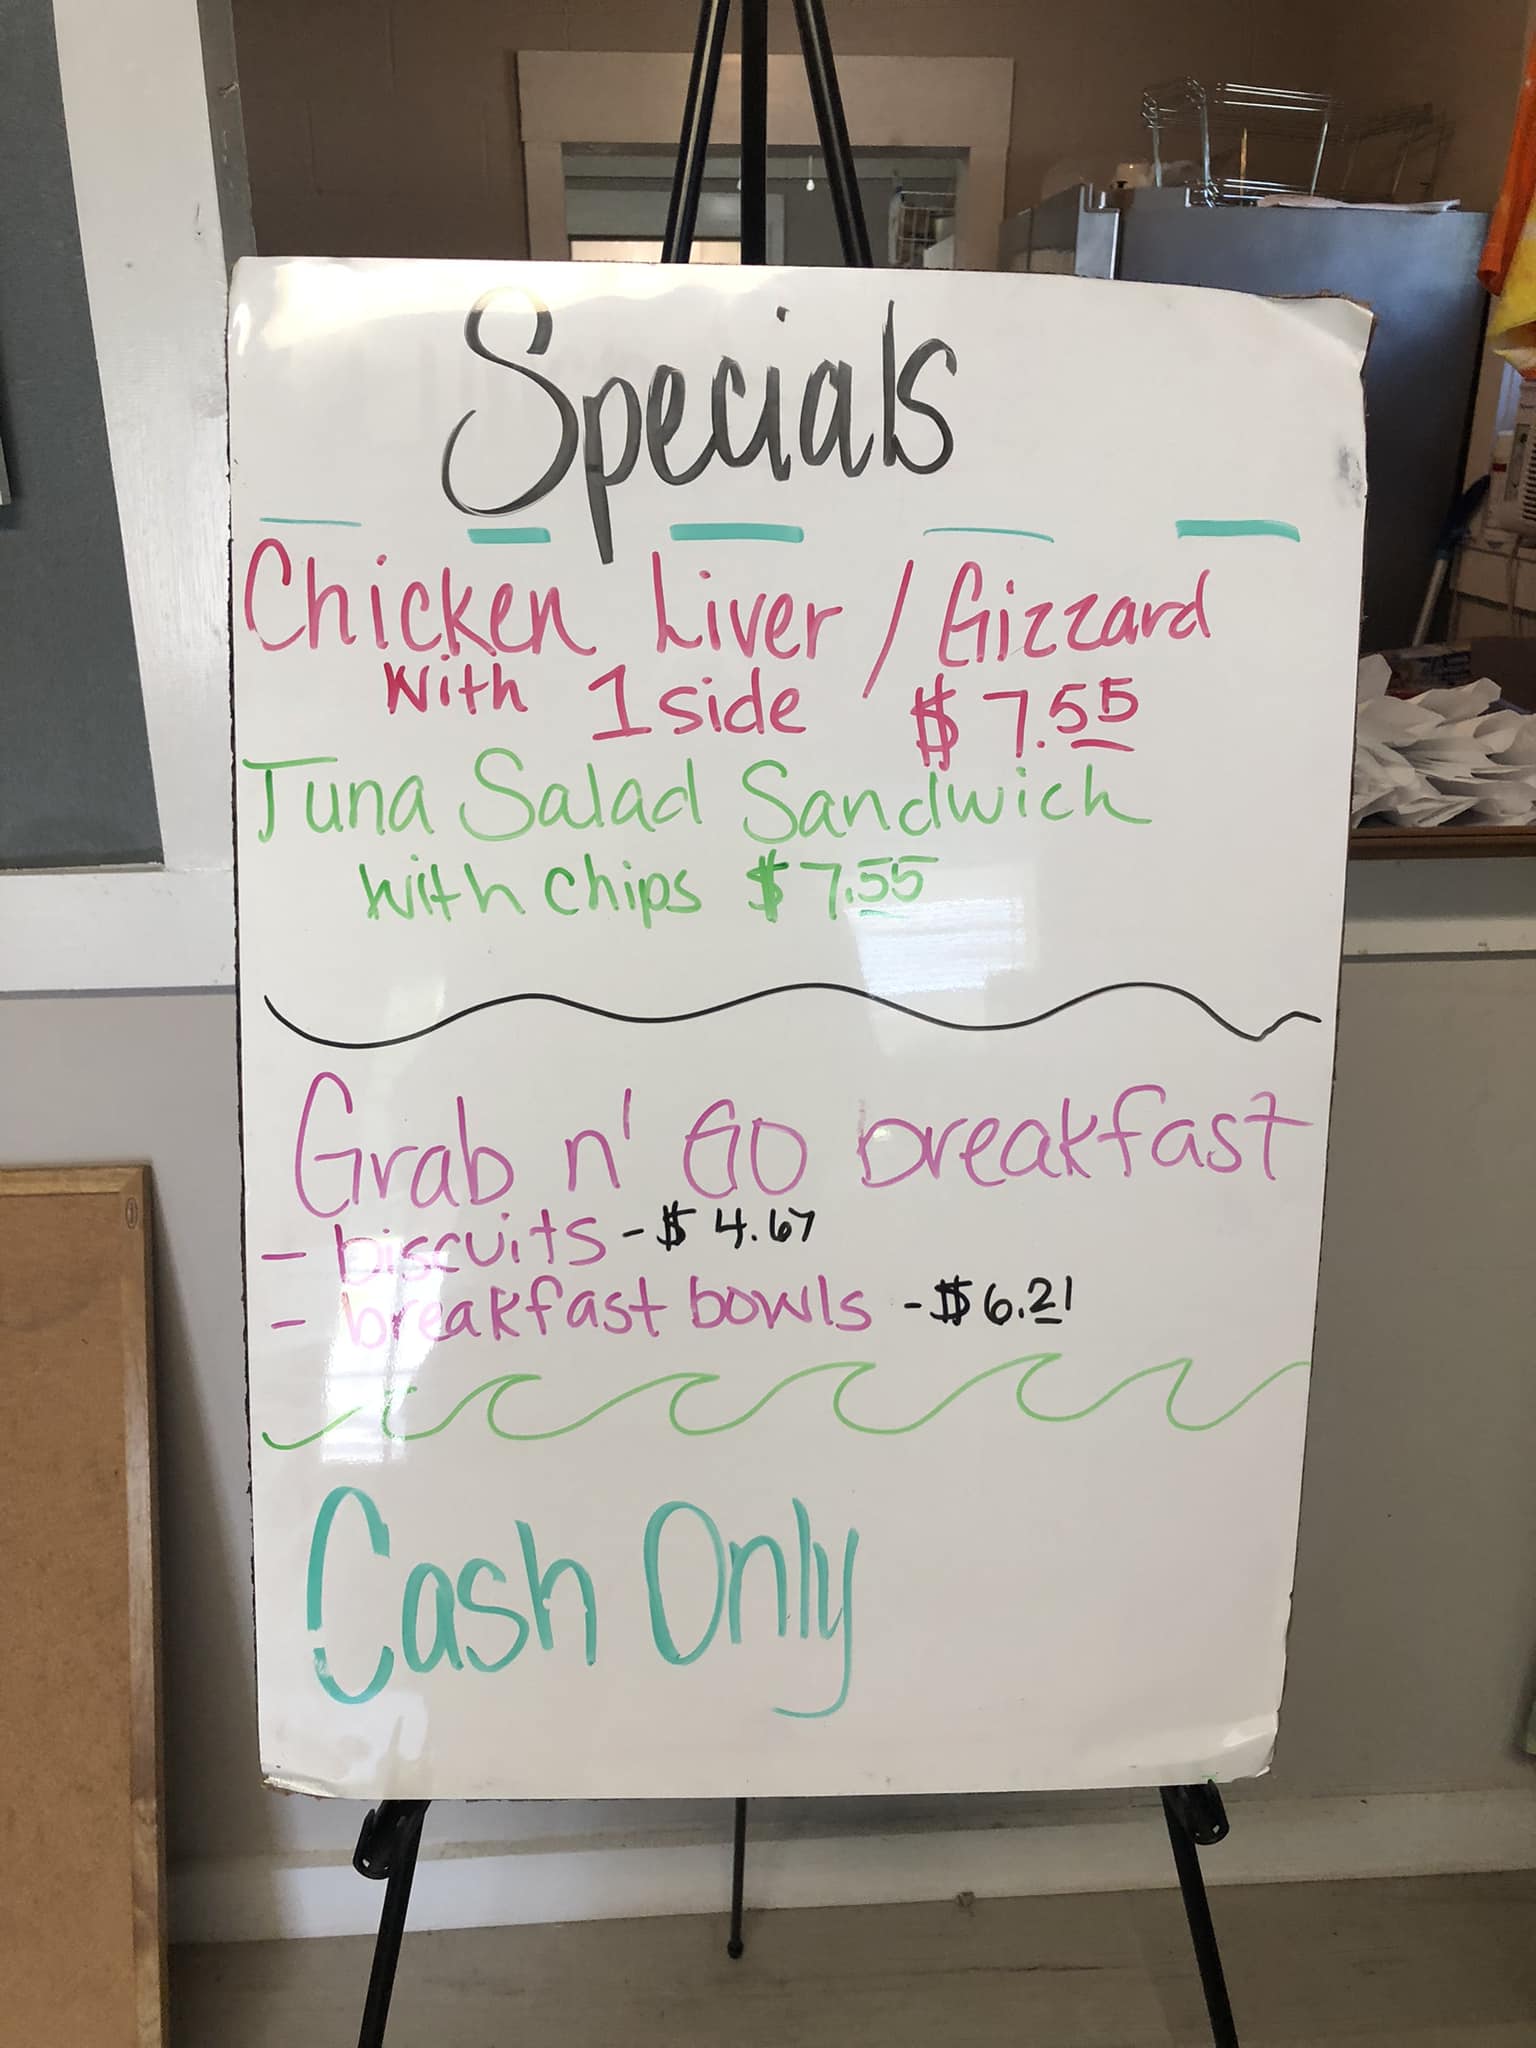 Specials
Chicken Liver / Gizzard
with 1 side $7.55
Tuna Salad Sandwich
with chips $7.55
Grab n' GO breakfast
- biscuits - $4.67
- breakfast bowls - $6.21
Cash Only